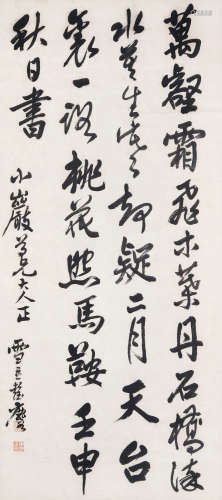 萬壑霜飛木葉丹石橋流
水暮生寒却疑二月天台
裏一路桃花照馬鞍壬申
秋日書
小巖尊兄大人正